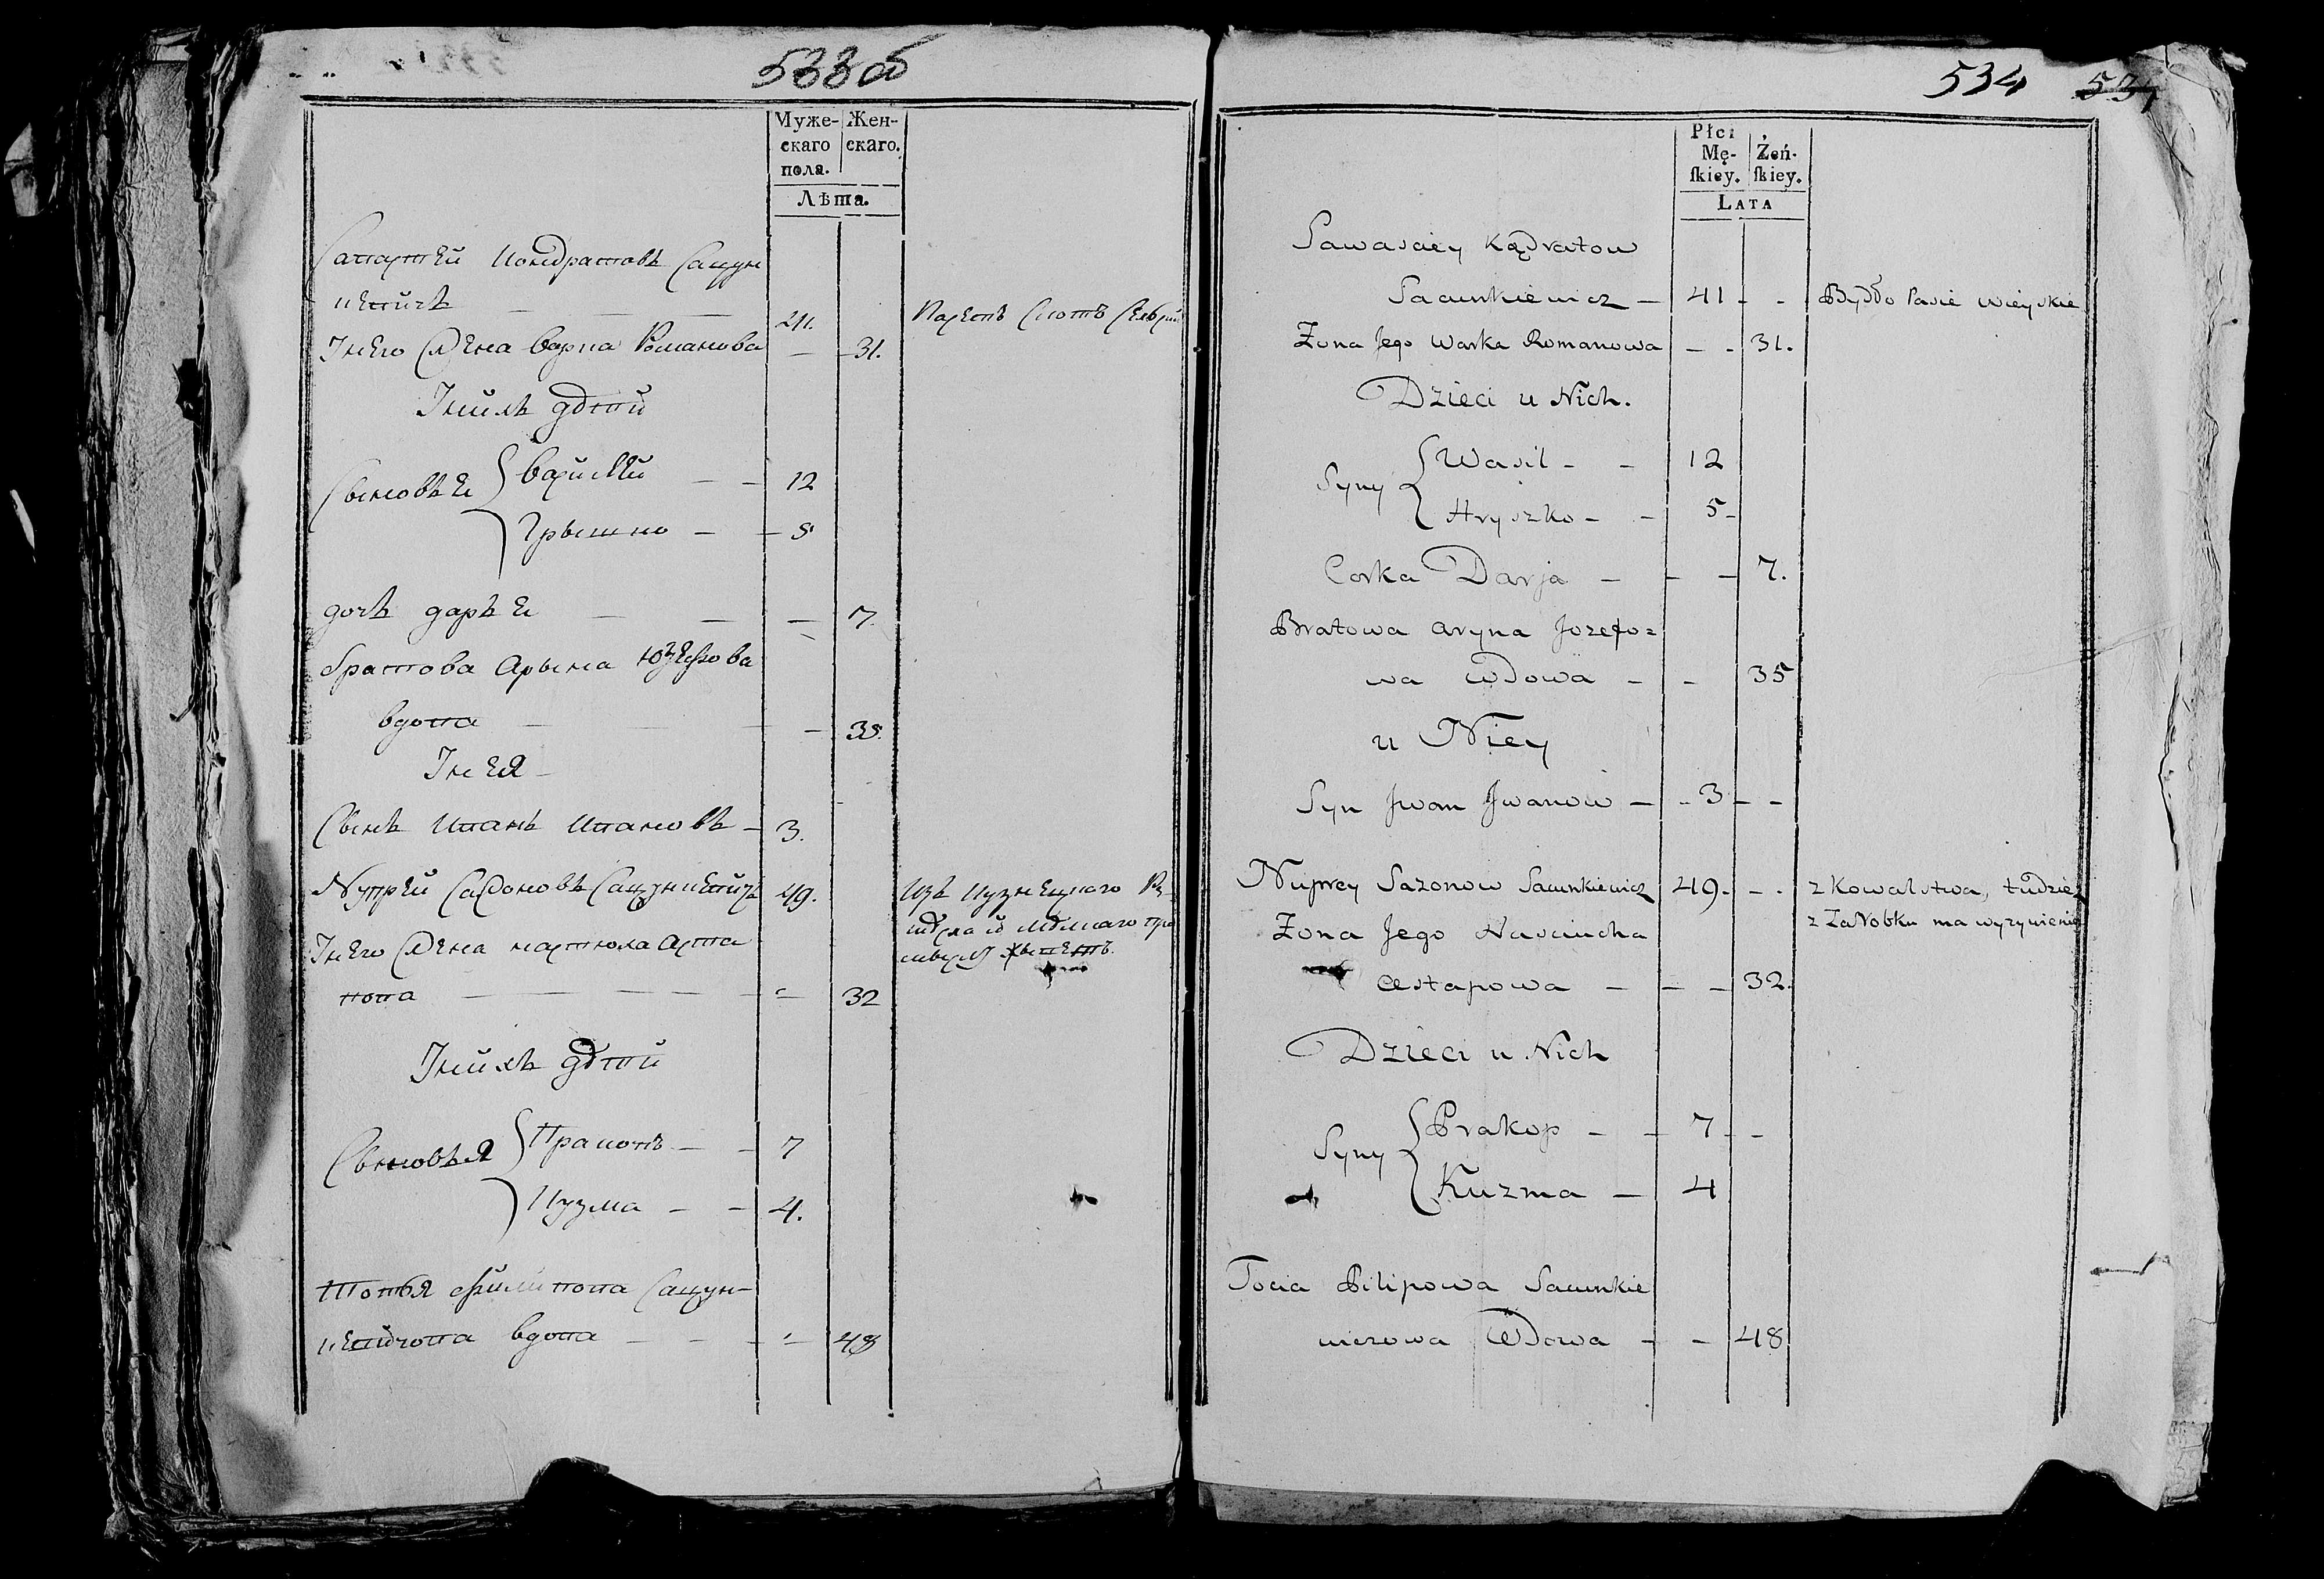 533 об
Муже-
скаго
пола.
Жен-
скаго.
Лѣта.
Савастей Кондратовъ Сацун
кевичъ — — —
41.
Пасетъ Скотъ
Унего Жена Варка Романова — 31.
Унихъ дѣти
Сыновье { Василей — — 12
Грышко — — 5
дочь дарье — — — 7.
братова Арына Юзефова
вдова — — — 35.
Унея —
Сынъ Иванъ Ивановъ — 3.
Нупрей Сазоновъ Сацункевичъ 49.
Изъ Кузнецкаго
Унего Жена настюха Аста
пова — — — — 32
Унихъ дѣти
Сыновья { Пракопъ — — 7
Кузма — — 4.
Тотья Филипова Сацун-
кевичова вдова — — — 48
534 534
Płci
Mę-
skiey.
Żeń-
skiey.
LATA
Sawasciey Kądratow
Sacunkiewicz — 41 - - Bydło Pasie wieyskie
Żona Jego Warka Romanowa — - 31.
Dzieci u Nich.
Syny { Wasil - - 12
Hryszko - - 5 -
Corka Darja — - — 7.
Bratowa Aryna Jozefo=
wa Wdowa - - 35
u Niey
Syn Jwan Jwanow — - 3 - -
Nuprey Sazonow Sacunkiewicz 49. - - z Kowalstwa, tudzież
z Zarobku ma wyzywienie
Żona Jego Nasciucha
Astapowa — - — 32.
Dzieci u Nich
Syny { Prakop - - 7 - -
Kuzma — 4
Tocia Pilipowa Sacunkie
wiczowa Wdowa - - 48